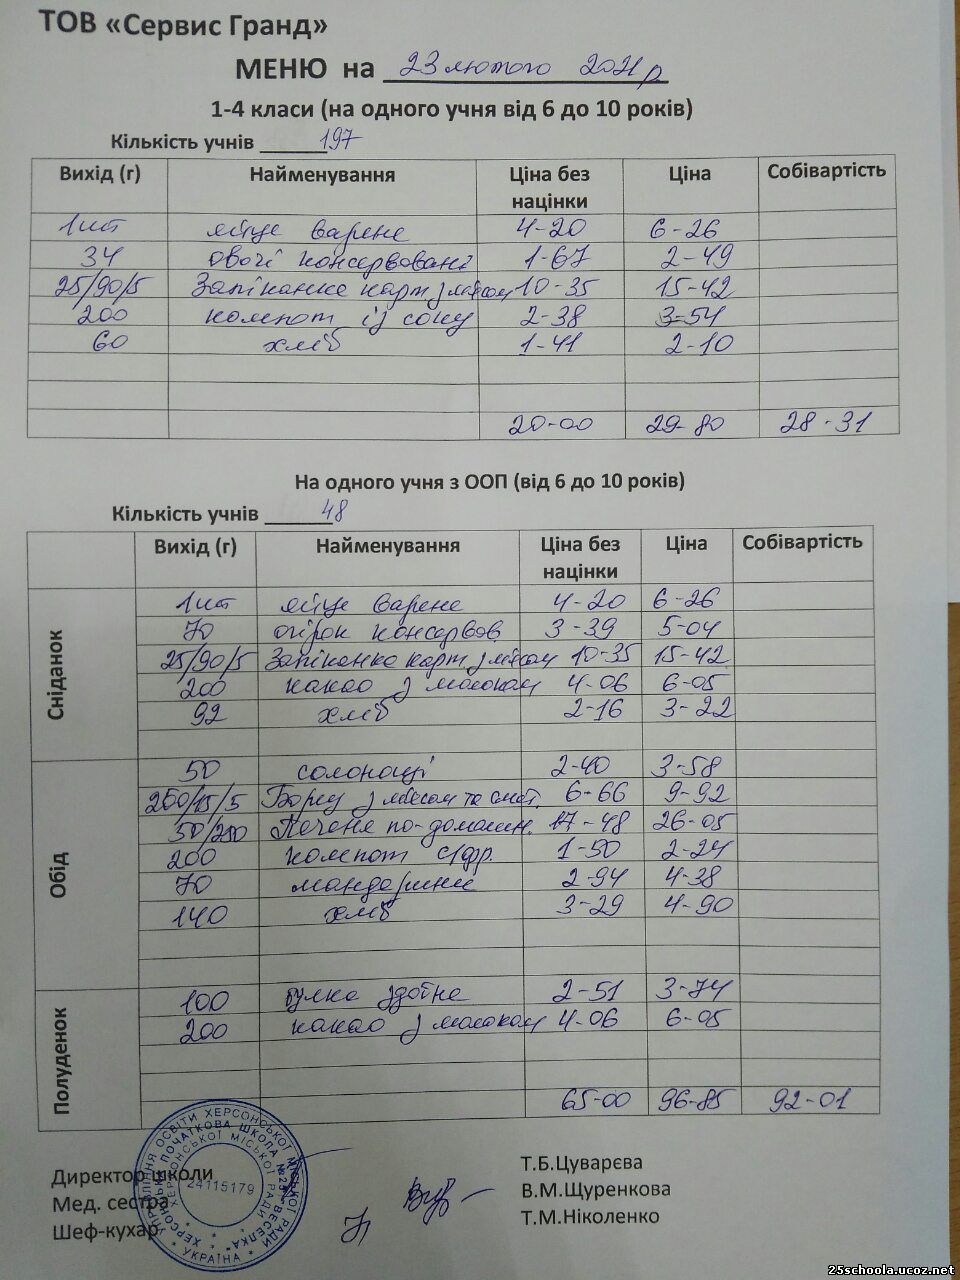 ТОВ «Сервис Гранд»
МЕНЮ на 23 лютого 2021р
1-4 класи (на одного учня від 6 до 10 років)
Кількість учнів 197
Вихід (г) Найменування Ціна без націнки Ціна Собівартість
1шт яйце варене 4-20 6-26
34 овочі консервовані 1-67 2-49
25/90/5 Запіканка карт з м'ясом 10-35 15-42
200 компот із соку 2-38 3-54
60 хліб 1-41 2-10
20-00 29-80 28-31
На одного учня з ООП (від 6 до 10 років)
Кількість учнів 48
Вихід (г) Найменування Ціна без націнки Ціна Собівартість
Сніданок
1шт яйце варене 4-20 6-26
70 огірок консервов. 3-39 5-04
25/90/5 Запіканка карт. з м'ясом 10-35 15-42
200 какао з молоком 4-06 6-05
92 хліб 2-16 3-22
Обід
50 солонощі 2-40 3-58
250/15/5 Борщ з м'ясом та смет. 6-66 9-92
50/250 Печеня по-домашн. 17-48 26-05
200 компот с/фр. 1-50 2-24
70 мандарини 2-94 4-38
140 хліб 3-29 4-90
Полуденок
100 булка здобна 2-51 3-74
200 какао з молоком 4-06 6-05
65-00 96-85 92-01
Директор школи Т.Б.Цуварєва
Мед. сестра В.М.Щуренкова
Шеф-кухар Т.М.Ніколенко
УПРАВЛІННЯ ОСВІТИ ХЕРСОНСЬКОЇ МІСЬКОЇ РАДИ
ХЕРСОНСЬКА ПОЧАТКОВА ШКОЛА №25 "ВЕСЕЛКА"
ХЕРСОНСЬКОЇ МІСЬКОЇ РАДИ
24115179
* УКРАЇНА *
25schoola.ucoz.net